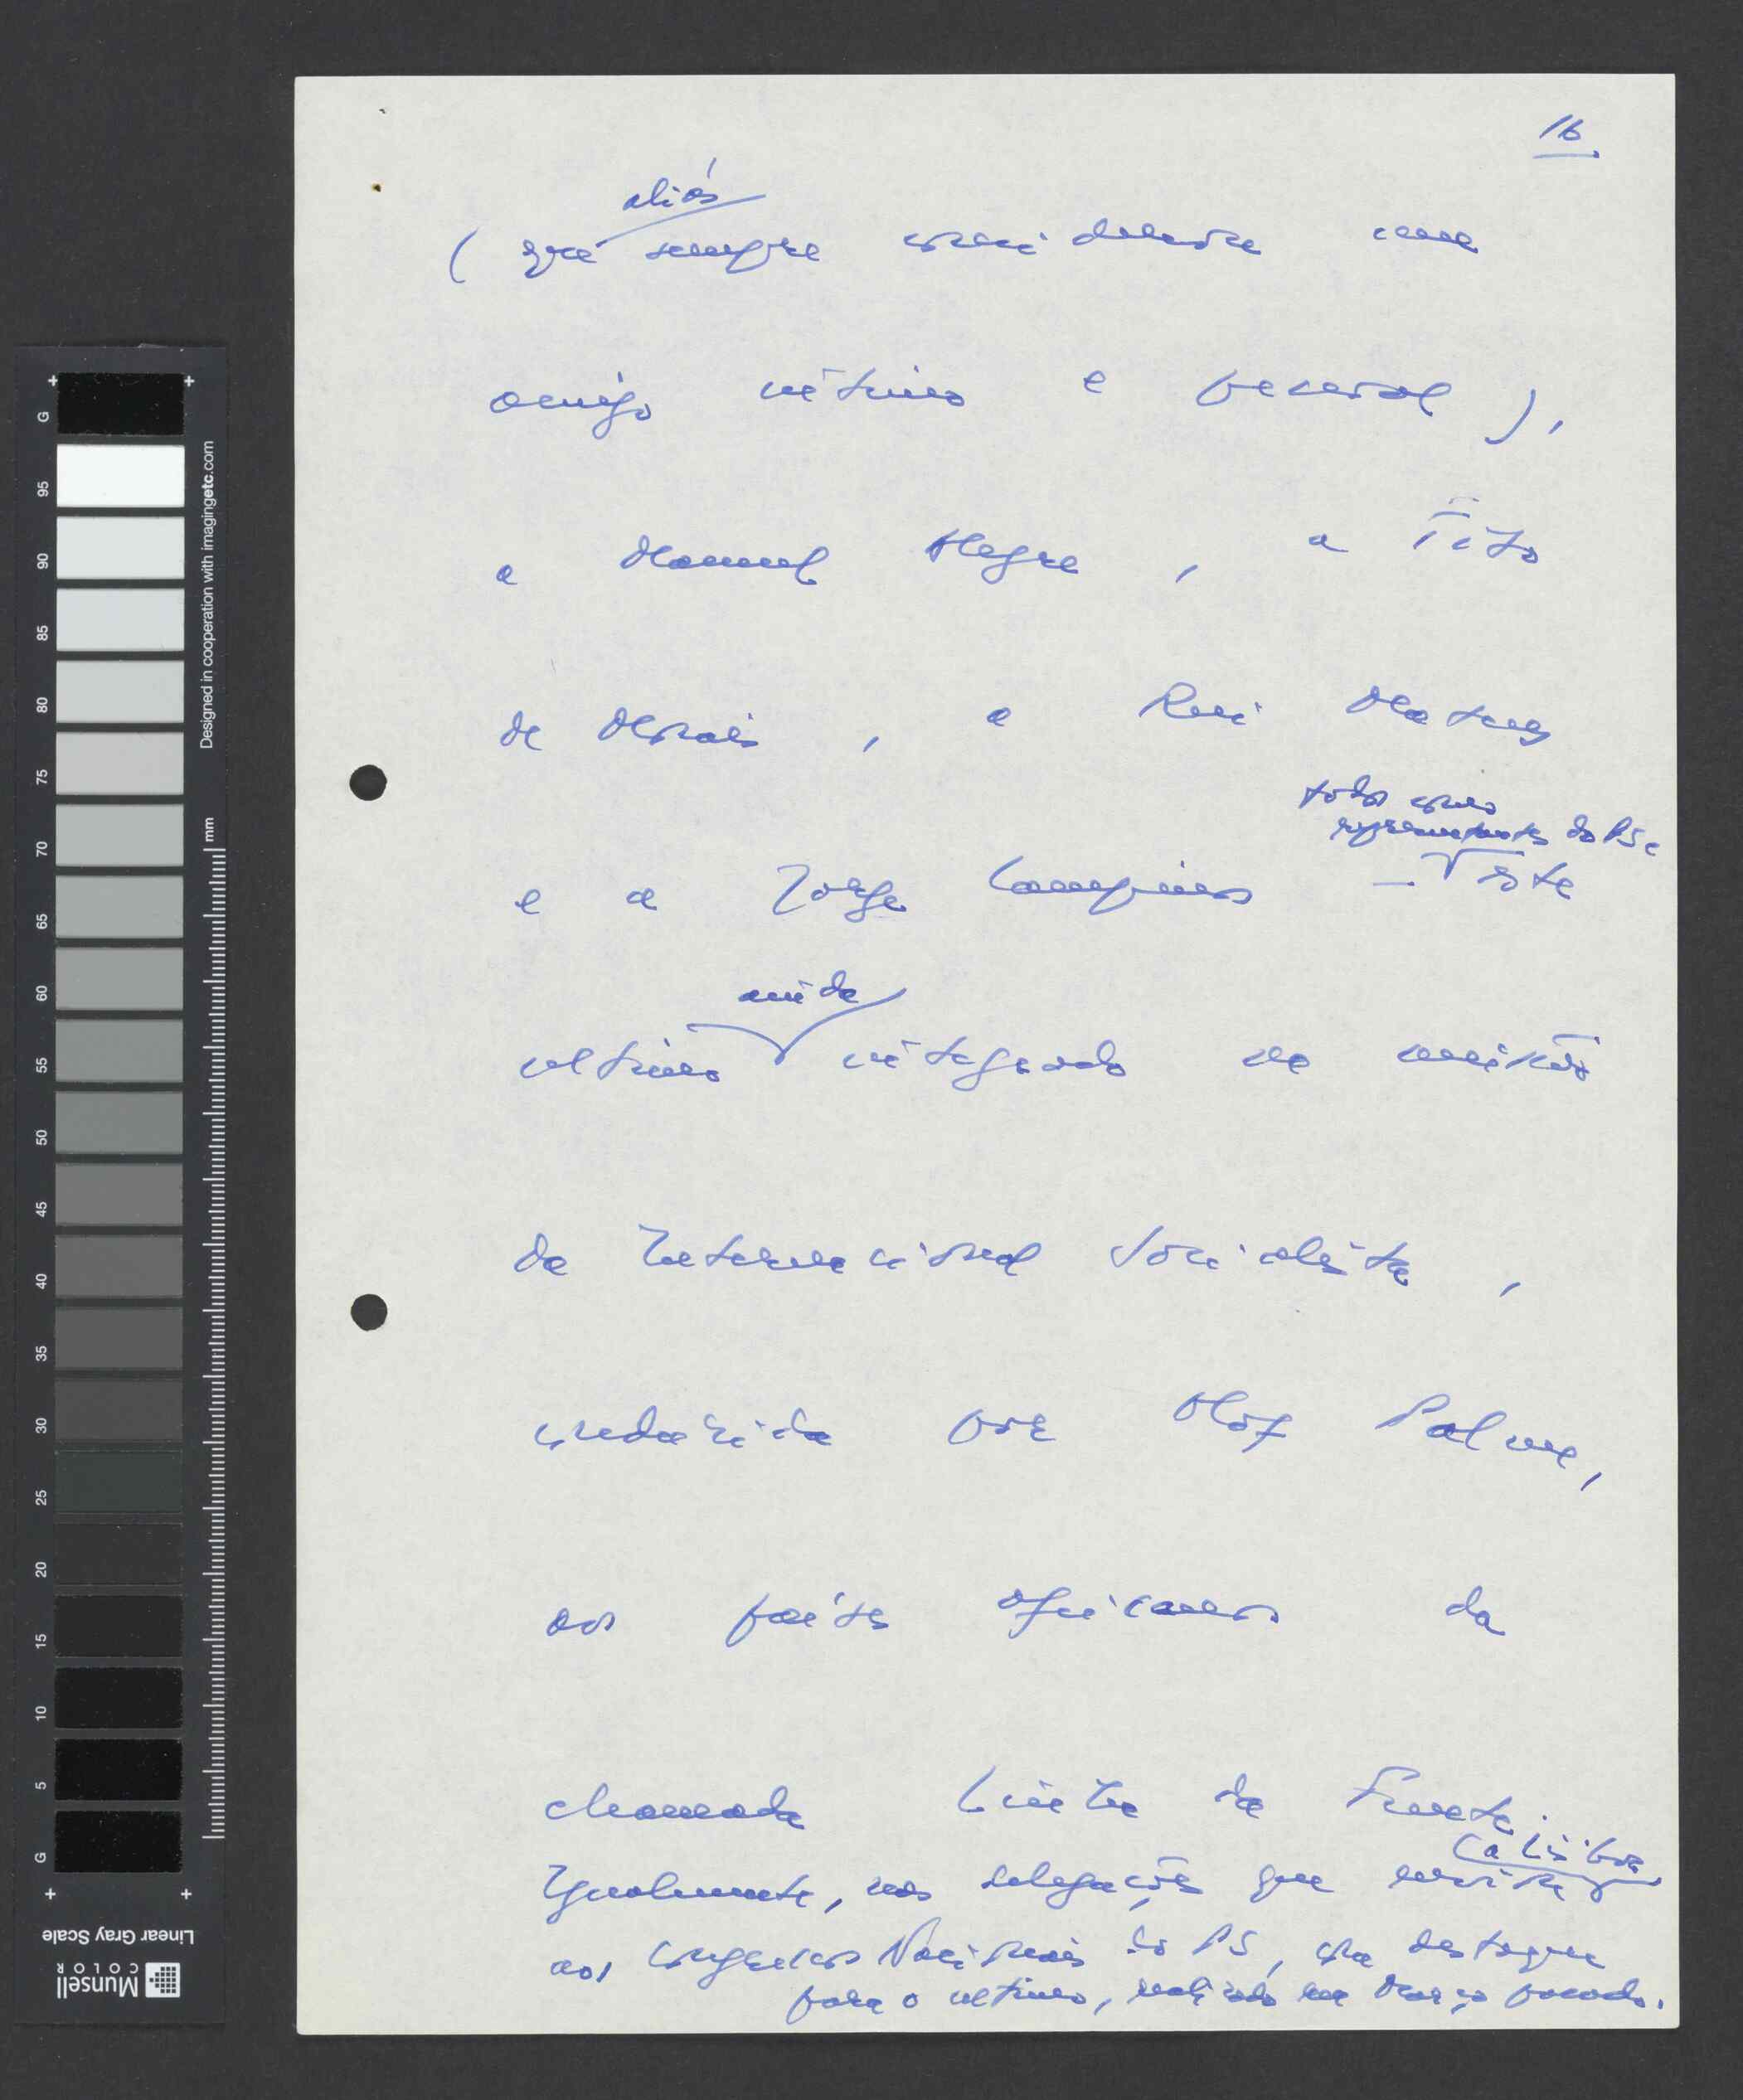 16.
aliás
( que sempre considerou um
amigo íntimo e pessoal ),
a Manuel Alegre, a Tito
de Morais, a Rui Mateus
todos como
representantes do PS e
e a Jorge Campinos – este
ainda
ultimo integrado na missão
da Internacional Socialista,
conduzida por Olof Palme,
aos países africanos da
chamada Linha da Frente.
(a Lisboa)
Igualmente, nas delegações que enviou
aos Congressos Nacionais do PS, com destaque
para o ultimo, realizado em Março passado.
G
95
90
85
80
75
70
65
60
55
50
45
40
35
30
25
20
15
10
5
G
mm
Designed in cooperation with imagingetc.com
Linear Gray Scale
Munsell
COLOR